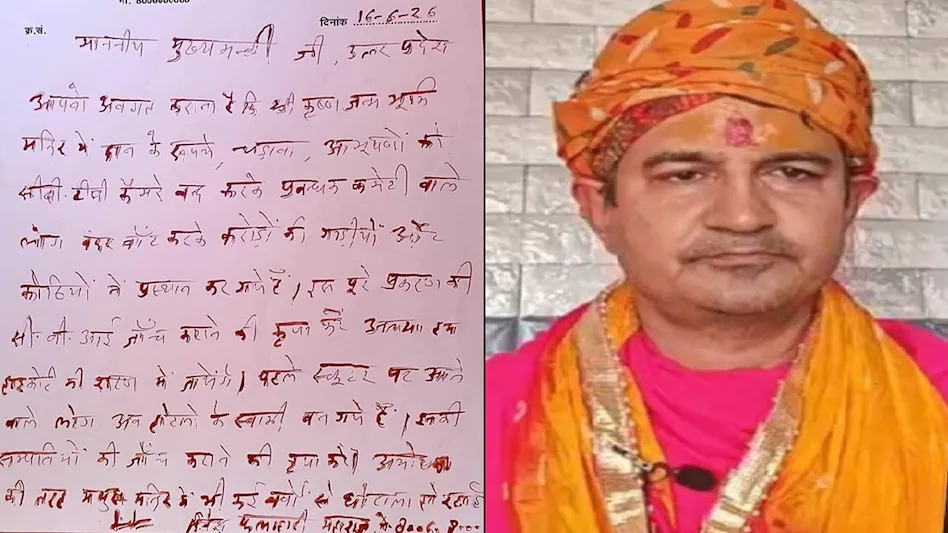 मो. 8006980000
क्र.सं. दिनांक 16-6-26
माननीय मुख्यमन्त्री जी, उत्तर प्रदेश
आपको अवगत कराना है कि श्री कृष्ण जन्म भूमि
मन्दिर में दान के रूपये, चढ़ावा, आभूषणों को
सीसी. टीवी कैमरे बन्द करके प्रबन्धक कमेटी वाले
लोग बंदर बाँट करके करोड़ों की गाड़ीयों और
कोठियों में प्रस्थान कर गये हैं। इस पूरे प्रकरण की
सी. बी. आई जाँच कराने की कृपा करें अन्यथा हम
हाईकोर्ट की शरण में जायेंगे। पहले स्कूटर पर आने
वाले लोग अब होटलो के स्वामी बन गये हैं। इनकी
सम्पातियों की जाँच कराने की कृपा करें। अयोध्या
की तरह मथुरा मन्दिर में भी कई वर्षो से घोटाला हो रहा है
दिनेश फलाहारी महाराज